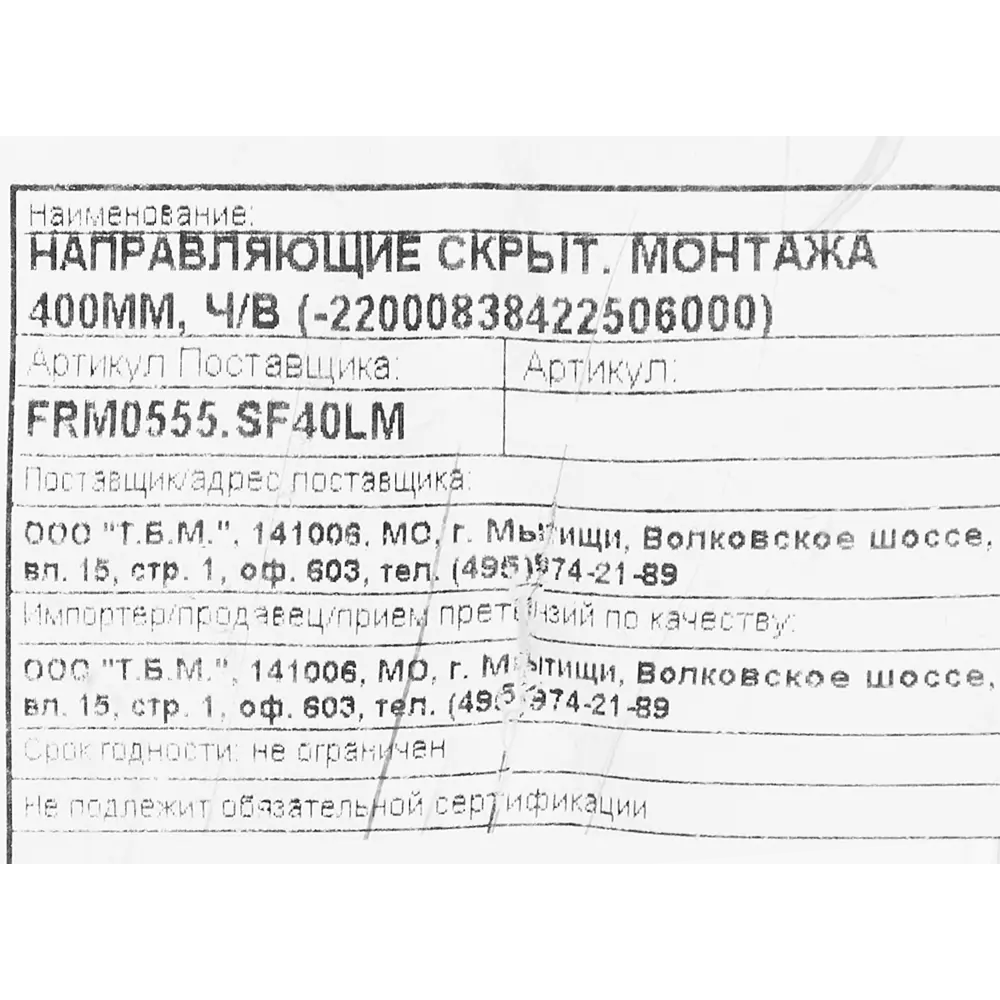 Наименование:
НАПРАВЛЯЮЩИЕ СКРЫТ. МОНТАЖА
400ММ, Ч/В (-2200083842250­6000)
Артикул Поставщика:
Артикул:
FRM0555.SF40LM
Поставщик/адрес поставщика:
ООО "Т.Б.М.", 141006, МО, г. Мытищи, Волковское шоссе,
вл. 15, стр. 1, оф. 603, тел. (495)974-21-89
Импортер/продавец/прием претензий по качеству:
ООО "Т.Б.М.", 141006, МО, г. Мытищи, Волковское шоссе,
вл. 15, стр. 1, оф. 603, тел. (495)974-21-89
Срок годности: не ограничен
Не подлежит обязательной сертификации